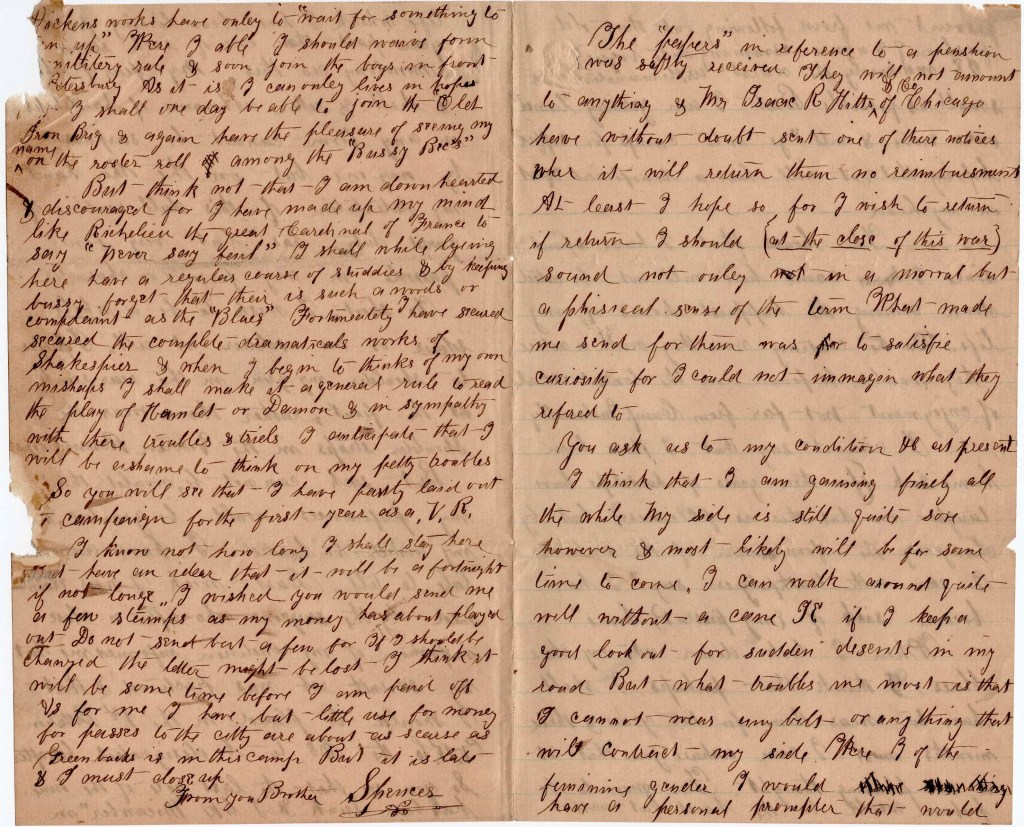 Dickens works have onley to "wait for something to
n up" Were I able I should waive form
military rule & soon join the boys in front
etersburg As it is I can onley lives in hopes
I shall one day be able to join the Old
Iron Brig & again have the pleasure of seeing my
name
on the roster roll among the "Bussy Bees"
But think not that I am downhearted
& discouraged for I have made up my mind
like Richelieu the great Cardinal of France to
say "Never say fail" I shall while lyeing
here have a regular course of studdies & by keeping
bussy forget that their is such a words or
complaint as the "Blues" Fortuneatoty I have secured
secured the complete dramaticals works of
Shakespier & when I begin to thinks of my own
mishaps I shall make it a general rule to read
the play of Hamlet or Damon & in sympathy
with there troubles & triels I anticipate that I
will be ashame to think on my petty troubles
So you will see that I have partly laid out
campaign for the first year as a, V. R.
I know not how long I shall stay here
but have an idear that it will be a fortnight
if not longe" I wished you would send me
a few stamps as my money has about played
out Do not send but a few for If I should be
changed the letter might be lost I think it
will be some time before I am paid off
As for me I have but little use for money
for passes to the citty are about as scarse as
Greenbacks is in this camp But it is late
& I must close up
From you Brother Spencer
The "papers" in reference to a penshion
was saftly received They will not amount
to anything & Mr Isaac R Hitts & Co of Chicago
have without doubt sent one of there notices
wher it will return them no reimbursment
At least I hope so, for I wish to return
if return I should (at the close of this war)
sound not onley not in a morral but
a phisical sense of the term What made
me send for them was for to satisfie
curiosity for I could not immagin what they
refered to
You ask as to my condition &c at present
I think that I am gainning finely all
the while My side is still quite sore
however & most likely will be for some
time to come. I can walk around quite
well without a cane IE if I keep a
good look out for sudden desents in my
road But what troubles me most is that
I cannot wear any belt or anything that
will contract my side Were I of the
feminine gender I would
have a personal prompter that would